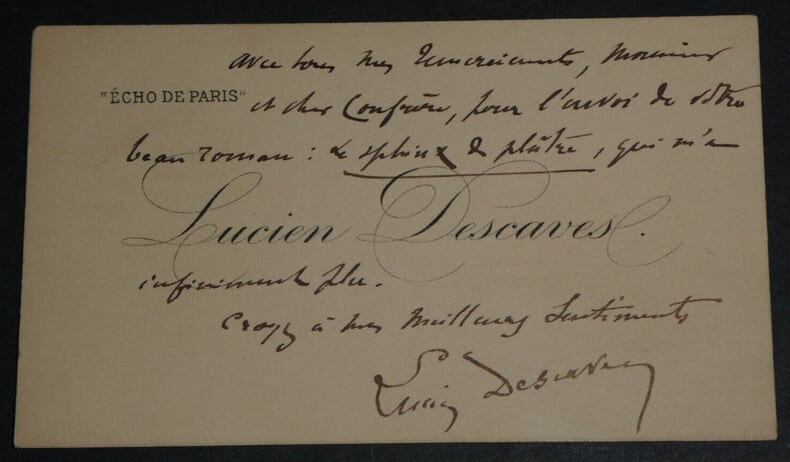 avec tous mes remerciements, Monsieur
"ÉCHO DE PARIS" et cher Confrère, pour l'envoi de votre
beau roman : Le sphinx de plâtre, qui m'a
Lucien Descaves.
infiniment plu.
Croyez à mes meilleurs sentiments
Lucien Descaves